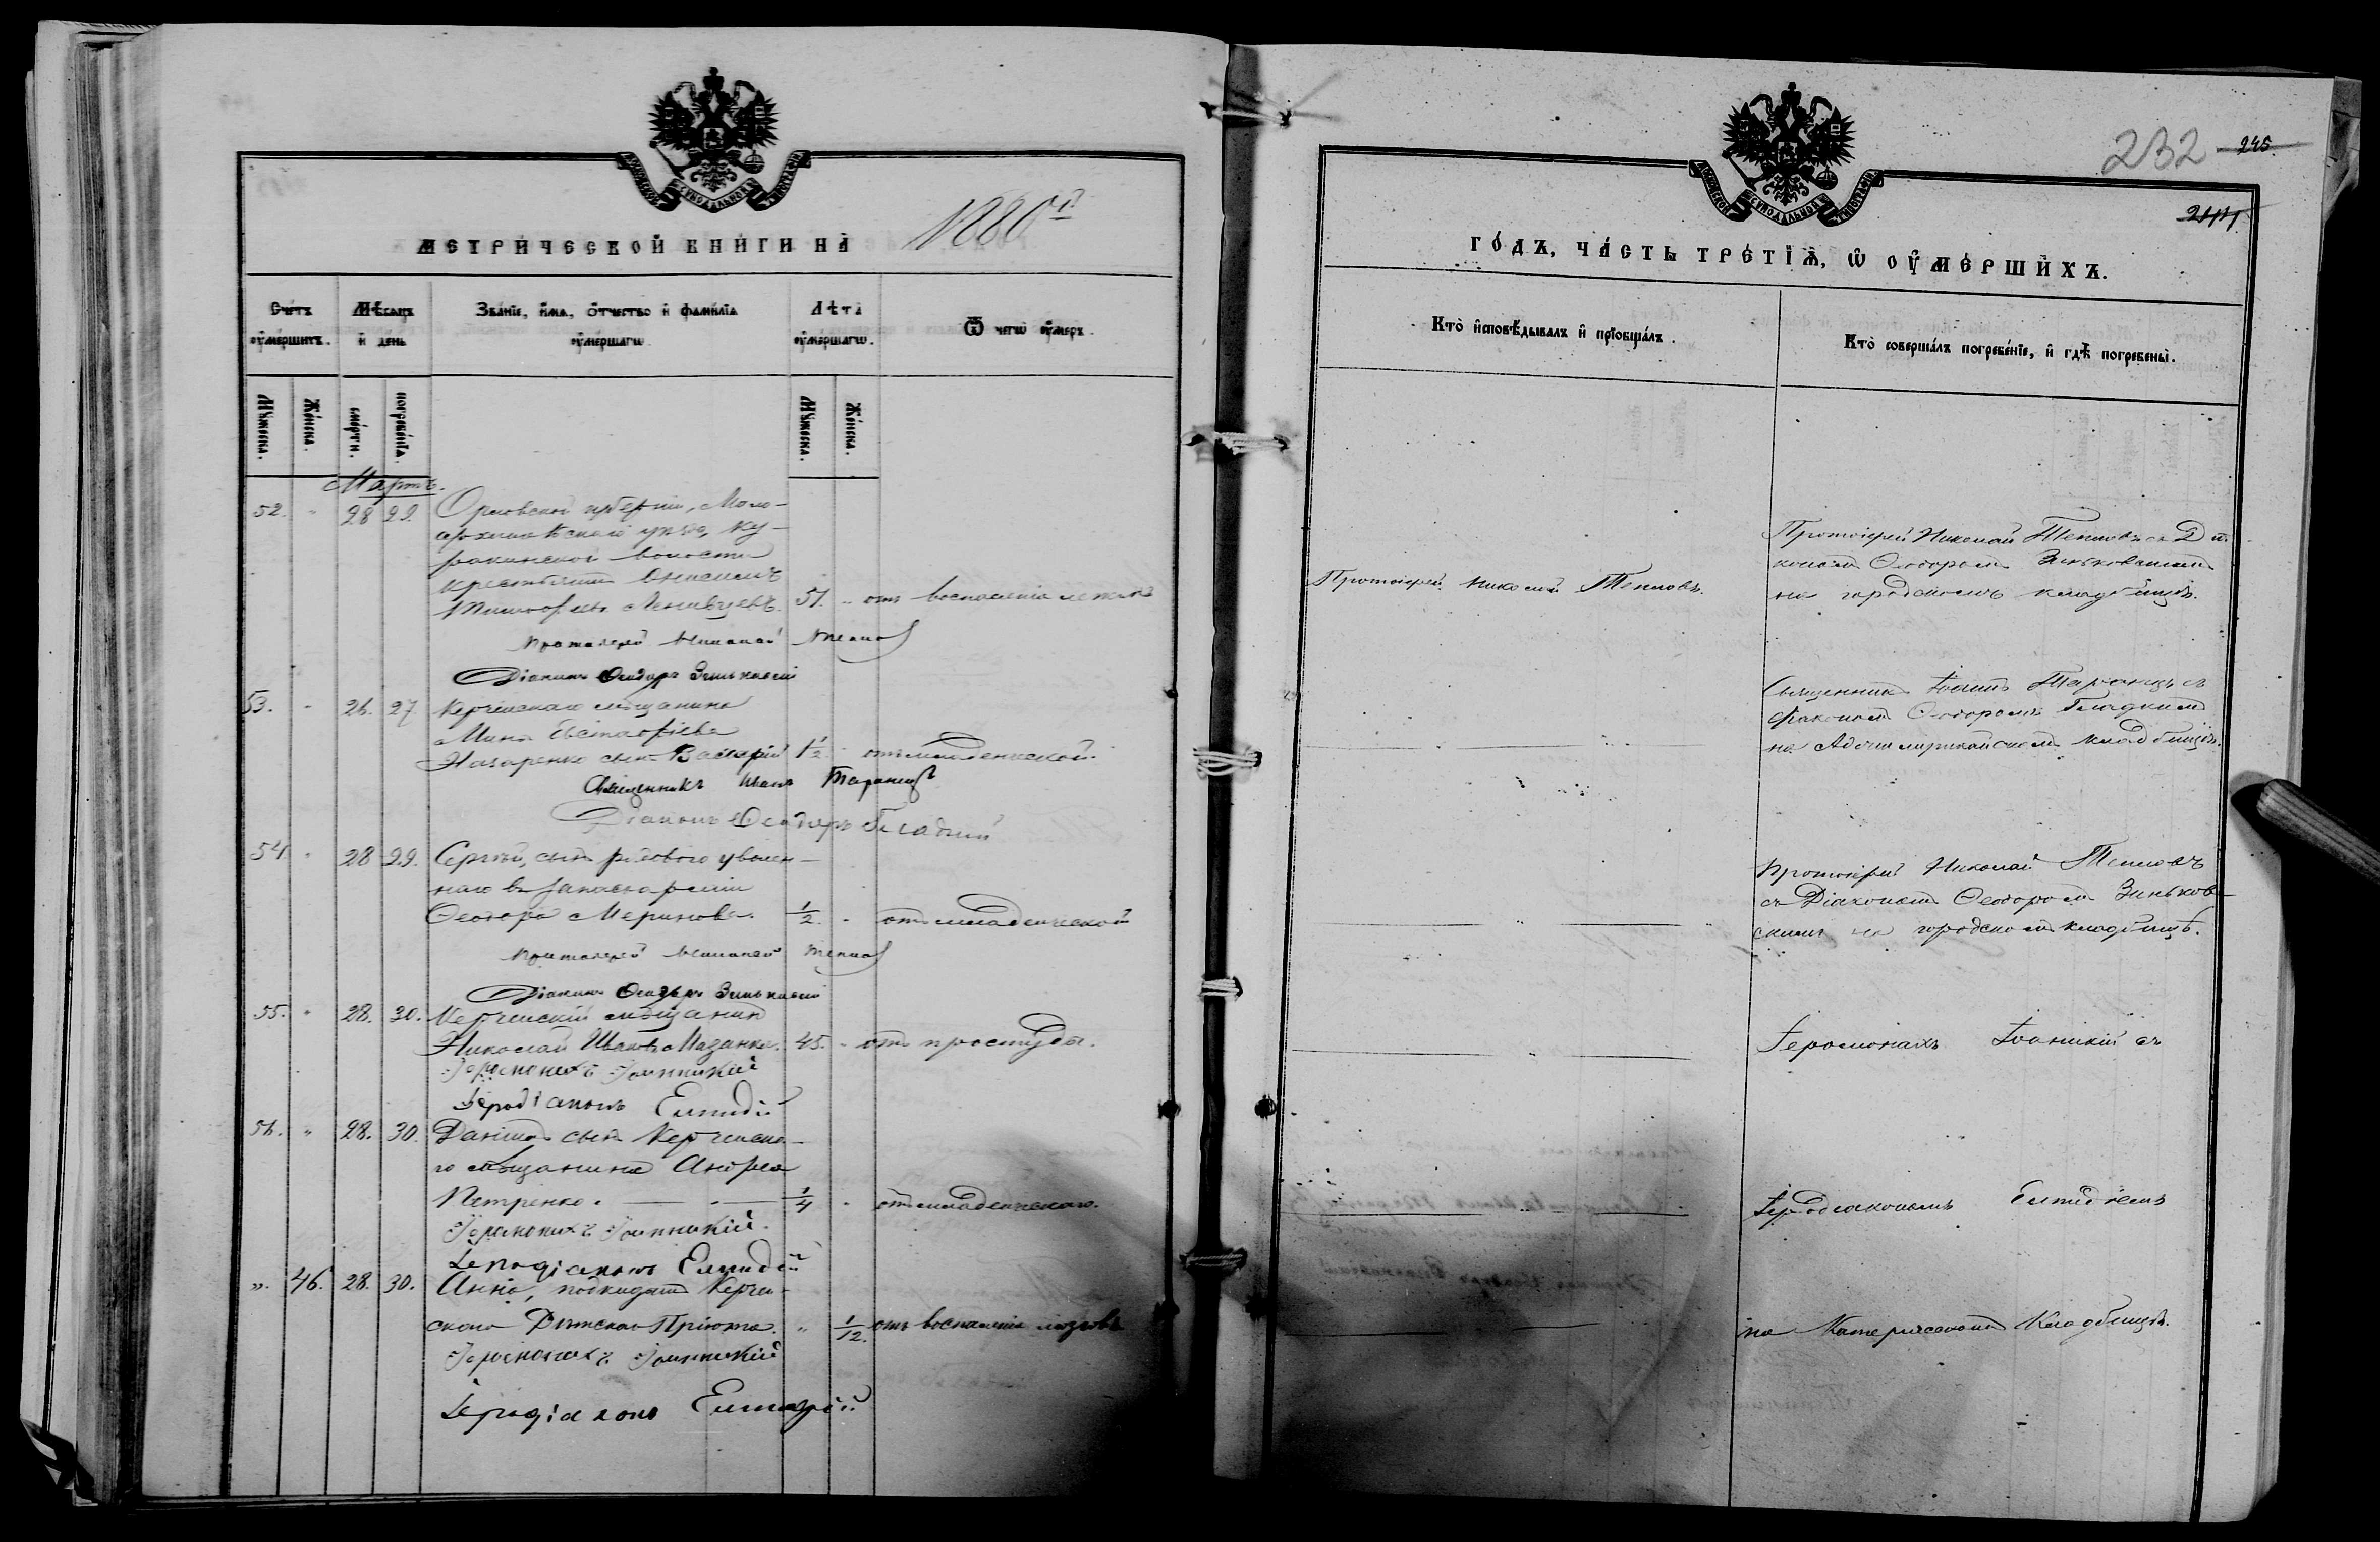 МЕТРИЧЕСКОЙ КНИГИ НА 1880й
Счетъ умершихъ.
Мѣсяцъ и день
Званіе, имя, отчество и фамилія умершаго
Лѣта умершаго.
Ѿ чегѡ умеръ.
Мужеска.
Женска.
смерти.
погребенія.
Мужеска.
Женска.
Мартъ.
52. " 28 29. Орловской губерніи, Мало-
архангельскаго уѣзда, Ку-
ракинской волости
крестьянинъ Онисимъ
51. " отъ воспаленія легкихъ
Протоіерей Николай Тепловъ
Діаконъ Ѳеодоръ Зиньковскій
53. " 26. 27. Керченскаго мѣщанина
Мины Евстафіева
Назаренко сынъ Валерій 1½ " отъ младенческой.
Священникъ Іоаннъ Таранецъ
Діаконъ Ѳеодоръ Гладкий
54 " 28 29. Сергѣй, сынъ рядового уволен-
наго въ запасъ арміи
Ѳеодора Меринова. 1/2. " отъ младенческой
Протоіерей Николай Тепловъ
Діаконъ Ѳеодоръ Зиньковскій
55. " 28. 30. Керченскій мѣщанинъ
Николай Мазанка. 45. " отъ простуды.
Іеромонахъ Іоанникій
Іеродіаконъ Елпидій
56. " 28. 30. Даніилъ сынъ Керченска-
го мѣщанина Андрея
Петренко. 1/4 " отъ младенческаго.
Іеромонахъ Іоанникій.
Іеродіаконъ Елпидій
". 46. 28. 30. Анна, подкидышъ Керчен-
скаго Дѣтскаго Пріюта. " 1/12. отъ воспаленія мозговъ
Іеромонахъ Іоанникій
Іеродіаконъ Елпидій
232 245.
244
ГОДЪ, ЧАСТЬ ТРЕТІѦ, Ѡ ОУМЕРШИХЪ.
Кто исповѣдывалъ и пріобщалъ.
Кто совершалъ погребеніе, и гдѣ погребены.
Протоіерей Николай Тепловъ.
Протоіерей Николай Тепловъ съ Діа-
кономъ Ѳеодоромъ Зиньковскимъ
на городскомъ кладбищѣ.
Священникъ Іоаннъ Таранецъ съ
діакономъ Ѳеодоромъ Гладкимъ
на кладбищѣ.
Протоіерей Николай Тепловъ
съ Діакономъ Ѳеодоромъ Зиньков-
скимъ на городскомъ кладбищѣ.
Іеромонахъ Іоанникій съ
Іеродіакономъ Елпидіемъ
на Кладбищѣ.